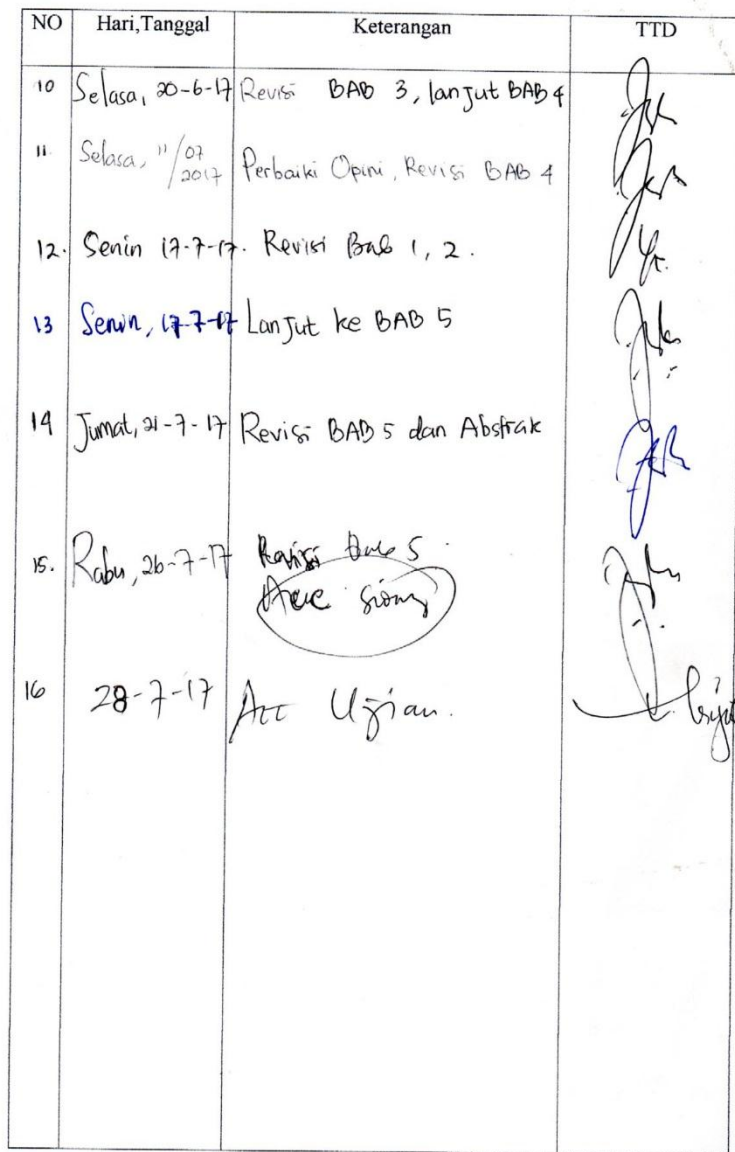 NO Hari,Tanggal Keterangan TTD
10 Selasa, 20-6-17 Revisi BAB 3, lanjut BAB 4
11. Selasa, 11/07 2017 Perbaiki Opini, Revisi BAB 4
12. Senin 17-7-17. Revisi Bab 1, 2.
13 Senin, 17-7-17 Lanjut ke BAB 5
14 Jumat, 21-7-17 Revisi BAB 5 dan Abstrak
15. Rabu, 26-7-17 Revisi Bab 5.
Acc
16 28-7-17 Acc Ujian.